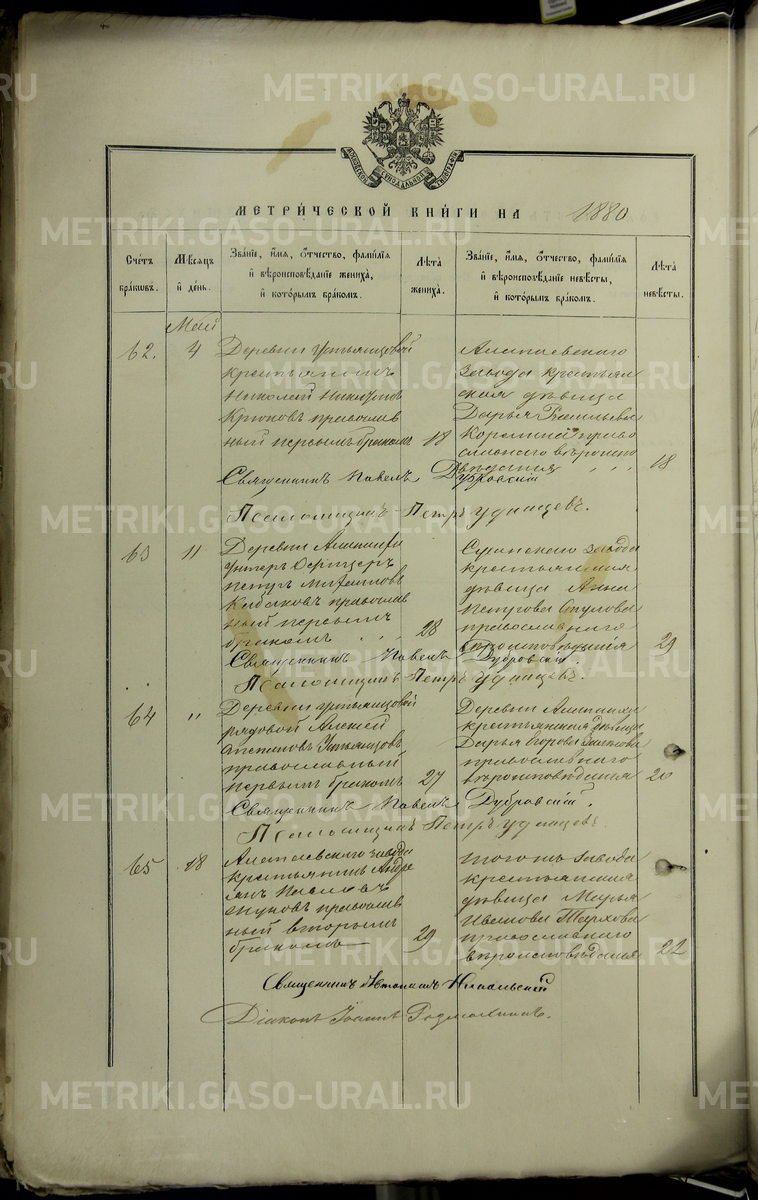 METRIKI.GASO-URAL.RU
МОСКОВСКОЙ СѴНОДАЛЬНОЙ ТИПОГРАФІИ
МЕТРИ́ЧЕСКОЙ КНИ́ГИ НА 1880
Сче́тъ бра́кѡвъ.
Мѣ́сѧцъ и҆ де́нь.
Зва́нїе, и҆́мѧ, ѻ҆́тчество, фами́лїѧ и҆ вѣроисповѣ́данїе жениха̀, и҆ кото́рымъ бра́комъ.
Лѣ́та жениха̀.
Зва́нїе, и҆́мѧ, ѻ҆́тчество, фами́лїѧ и҆ вѣроисповѣ́данїе невѣ́сты, и҆ кото́рымъ бра́комъ.
Лѣ́та невѣ́сты.
Май
62. 4
Деревни Устьянцовой
крестьянинъ
Николай
Крюковъ православ
ный первымъ бракомъ 18
Алапаевскаго
завода крестьян
ская дѣвица
Дарья Васильева
право
славнаго вѣроиспо
вѣданія 18
Священникъ Павелъ Дубровскій
Псаломщикъ Петръ Удинцевъ.
63 11
Деревни
унтеръ Офицеръ
Петръ
Кабаковъ православ
ный первымъ
бракомъ 28
завода
крестьянская
дѣвица Анна
Петрова
православнаго
вѣроисповѣданія 29
Священникъ Павелъ Дубровскій.
Псаломщикъ Петръ Удинцевъ.
64 "
Деревни Устьянцовой
рядовой Алексей
Степановъ Устьянцовъ
православный
первымъ бракомъ 27
Деревни
крестьянская дѣвица
Дарья Егорова
православнаго
вѣроисповѣданія 20
Священникъ Павелъ Дубровскій.
Псаломщикъ Петръ Удинцевъ.
65 18
Алапаевскаго завода
крестьянинъ Андре
янъ Павловъ
Жуковъ православ
ный вторымъ
бракомъ 29
Тогожъ завода
крестьянская
дѣвица Марья
Иванова
православнаго
вѣроисповѣданія 22
Священникъ Никольскій
Діаконъ Іоаннъ